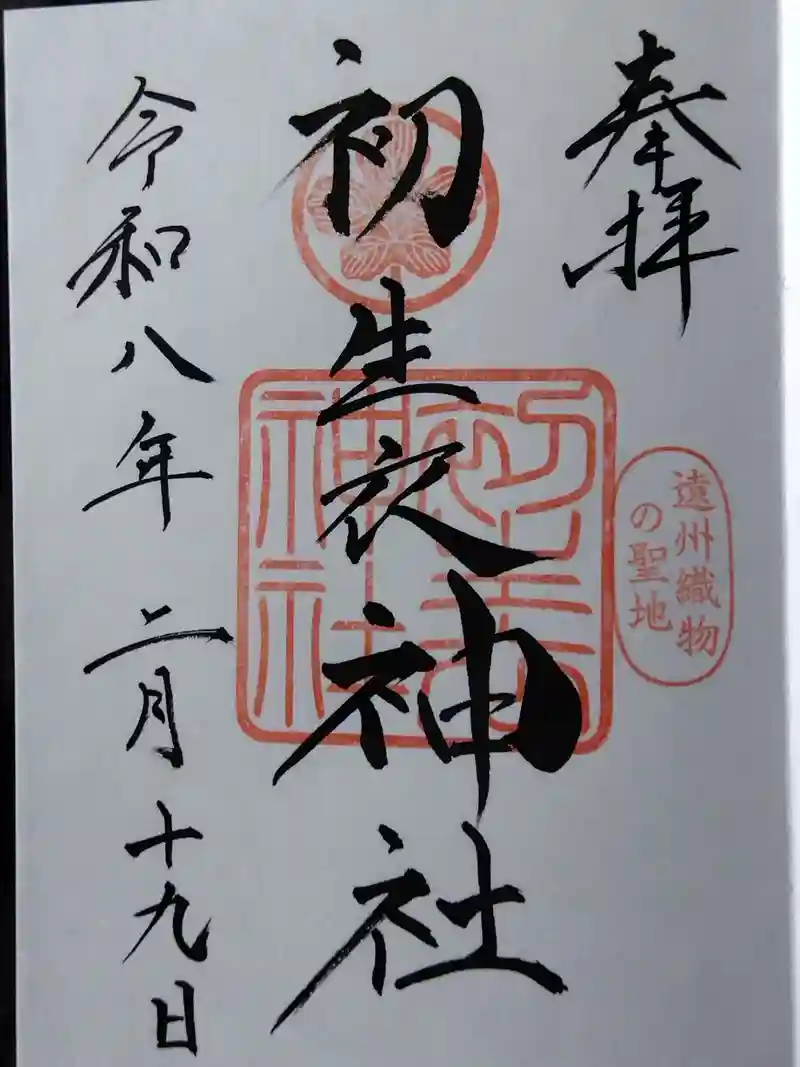 奉拝
遠州織物
の聖地
初生衣神社
初生衣
神社
令和八年 二月十九日